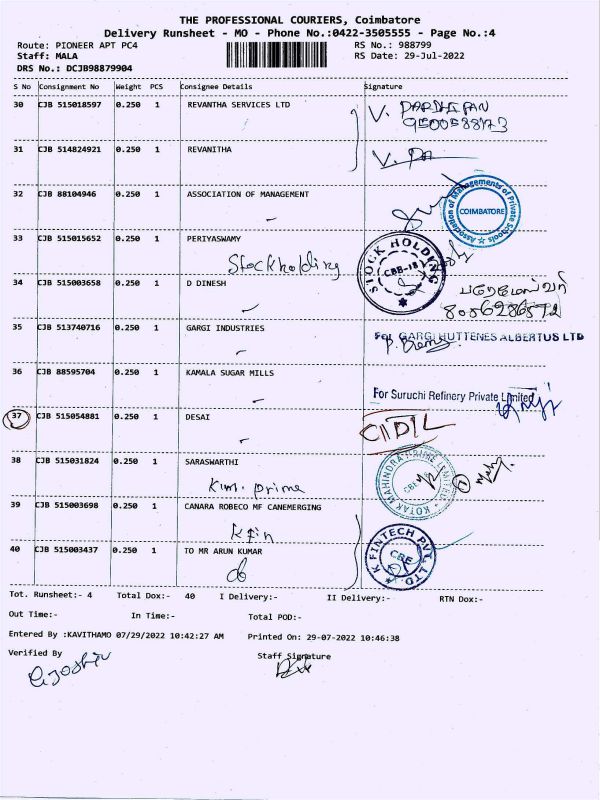 THE PROFESSIONAL COURIERS, Coimbatore
Delivery Runsheet - MO - Phone No.:0422-3505555 - Page No.:4
Route: PIONEER APT PC4 RS No.: 988799
Staff: MALA RS Date: 29-Jul-2022
DRS No.: DCJB98879904
S No Consignment No Weight PCS Consignee Details Signature
30 CJB 515018597 0.250 1 REVANTHA SERVICES LTD
31 CJB 514824921 0.250 1 REVANITHA
32 CJB 88104946 0.250 1 ASSOCIATION OF MANAGEMENT
Association of Managements of Private Schools
COIMBATORE
33 CJB 515015652 0.250 1 PERIYASWAMY
Stockholding
STOCK HOLDING
CBB-18
34 CJB 515003658 0.250 1 D DINESH
35 CJB 513740716 0.250 1 GARGI INDUSTRIES
For GARGI HUTTENES ALBERTUS LTD
36 CJB 88595704 0.250 1 KAMALA SUGAR MILLS
For Suruchi Refinery Private Limited
37 CJB 515054881 0.250 1 DESAI
38 CJB 515031824 0.250 1 SARASWARTHI
Kim. prime
KOTAK MAHINDRA PRIME LIMITED
39 CJB 515003698 0.250 1 CANARA ROBECO MF CANEMERGING
Kfin
40 CJB 515003437 0.250 1 TO MR ARUN KUMAR
do
K FINTECH PVT. LTD.
CBE
Tot. Runsheet:- 4 Total Dox:- 40 I Delivery:- II Delivery:- RTN Dox:-
Out Time:- In Time:- Total POD:-
Entered By :KAVITHAMO 07/29/2022 10:42:27 AM Printed On: 29-07-2022 10:46:38
Verified By Staff Signature